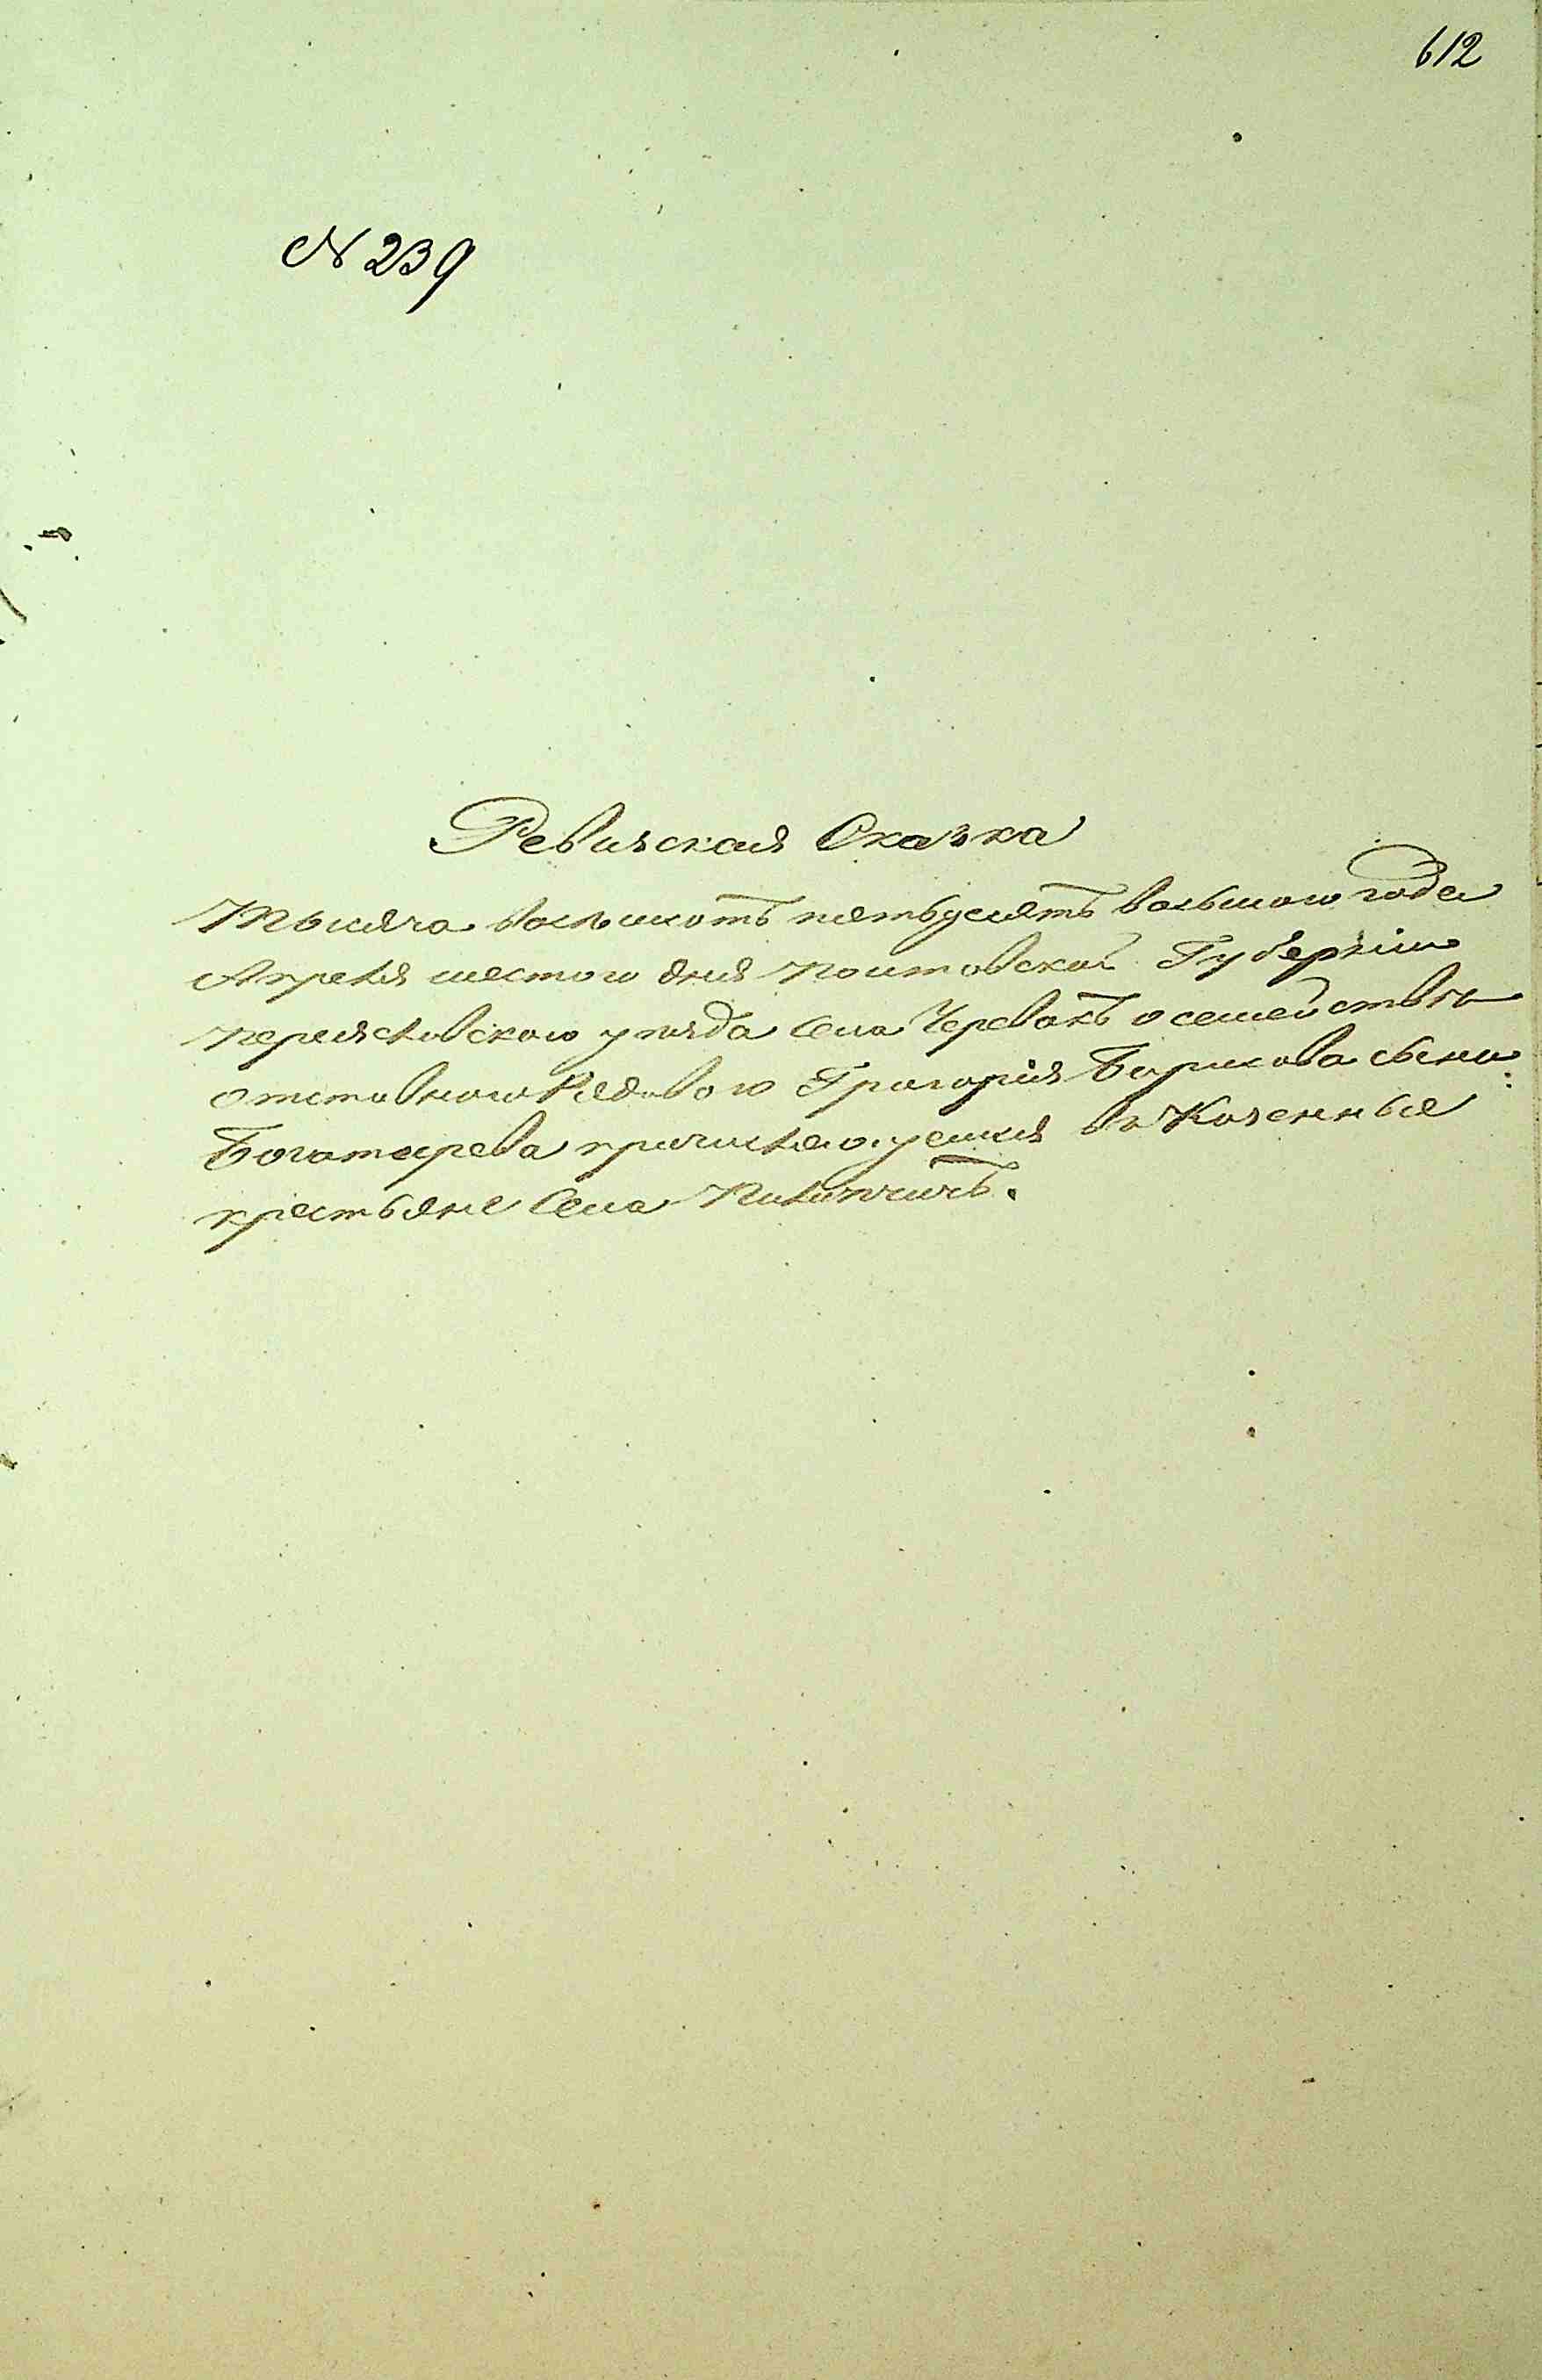 612
N 239
Ревизская Сказка
Тысяча восемсотъ пятьдесятъ восьмого года
Апреля шестого дня Полтовской Губерніи
переясловского уѣзда Села Черевакъ о семействѣ
отставного Рядового Григорія Борисова
Богатирева причисляющемся въ Козенные
крестьяне Села